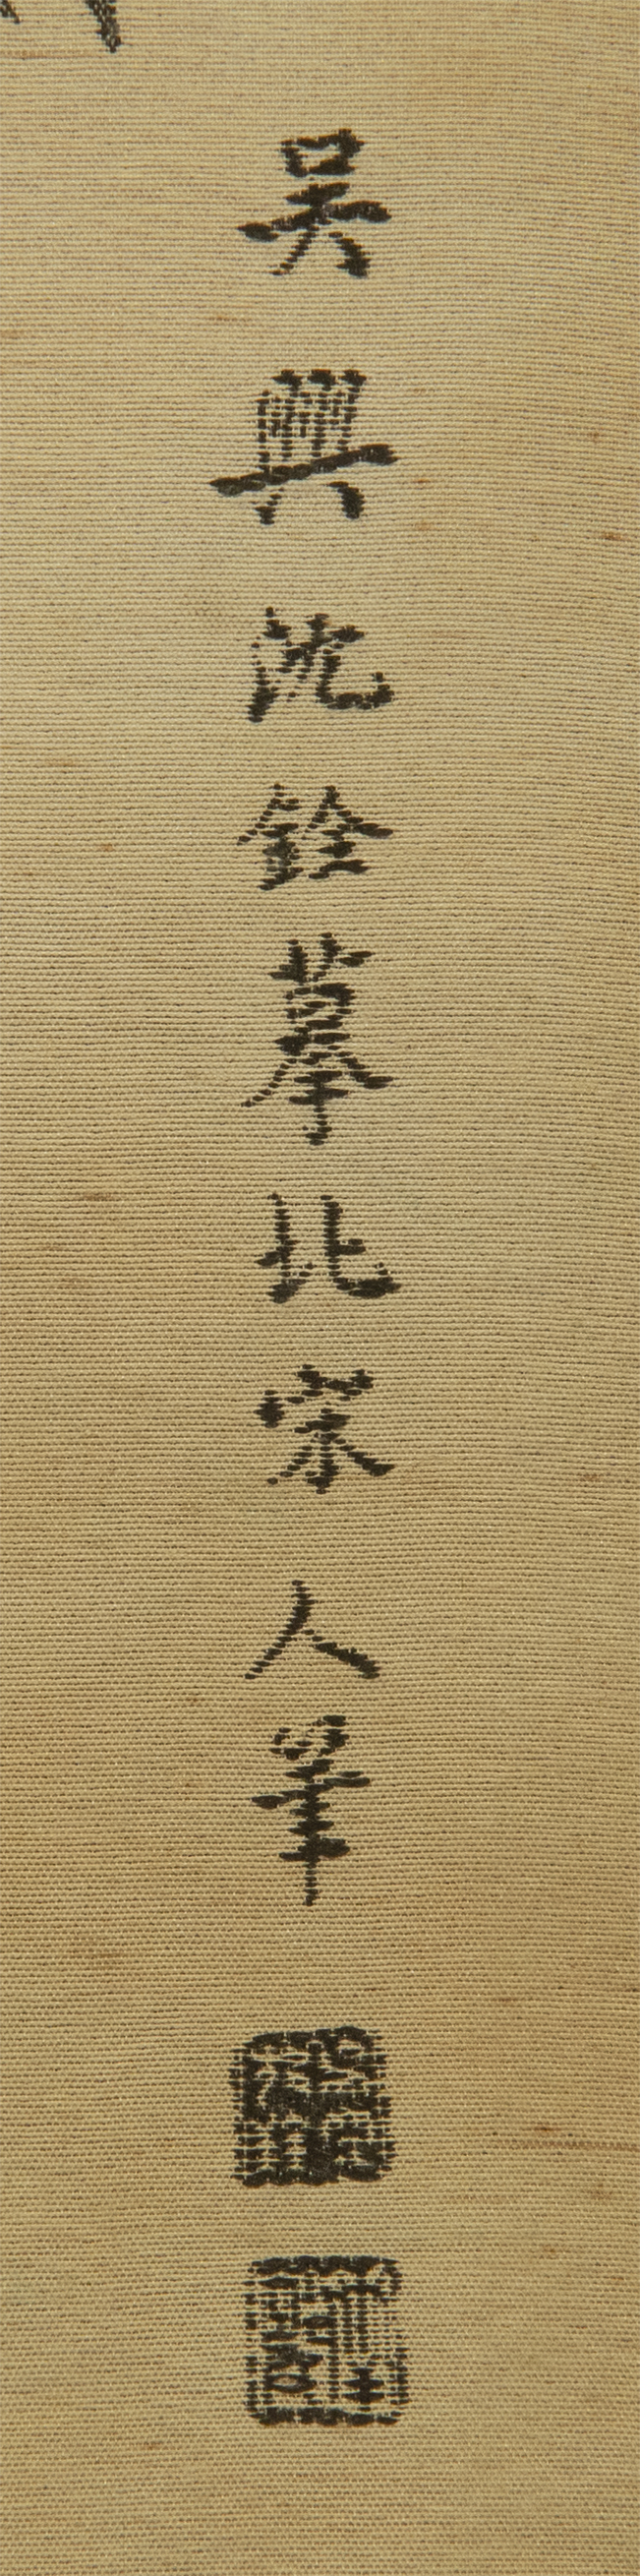 吴興沈銓摹北宋人筆